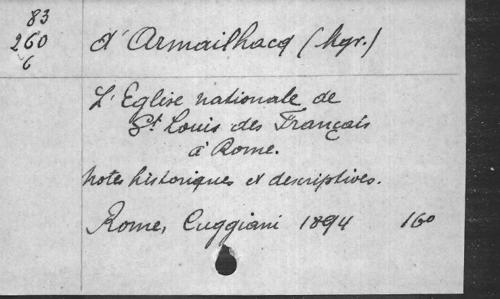 83
260
6
d'Armailhacq (Mgr.)
L'Eglise nationale de
St. Louis des Français
à Rome.
Notes historiques et descriptives.
Rome, Cuggiani 1894 160